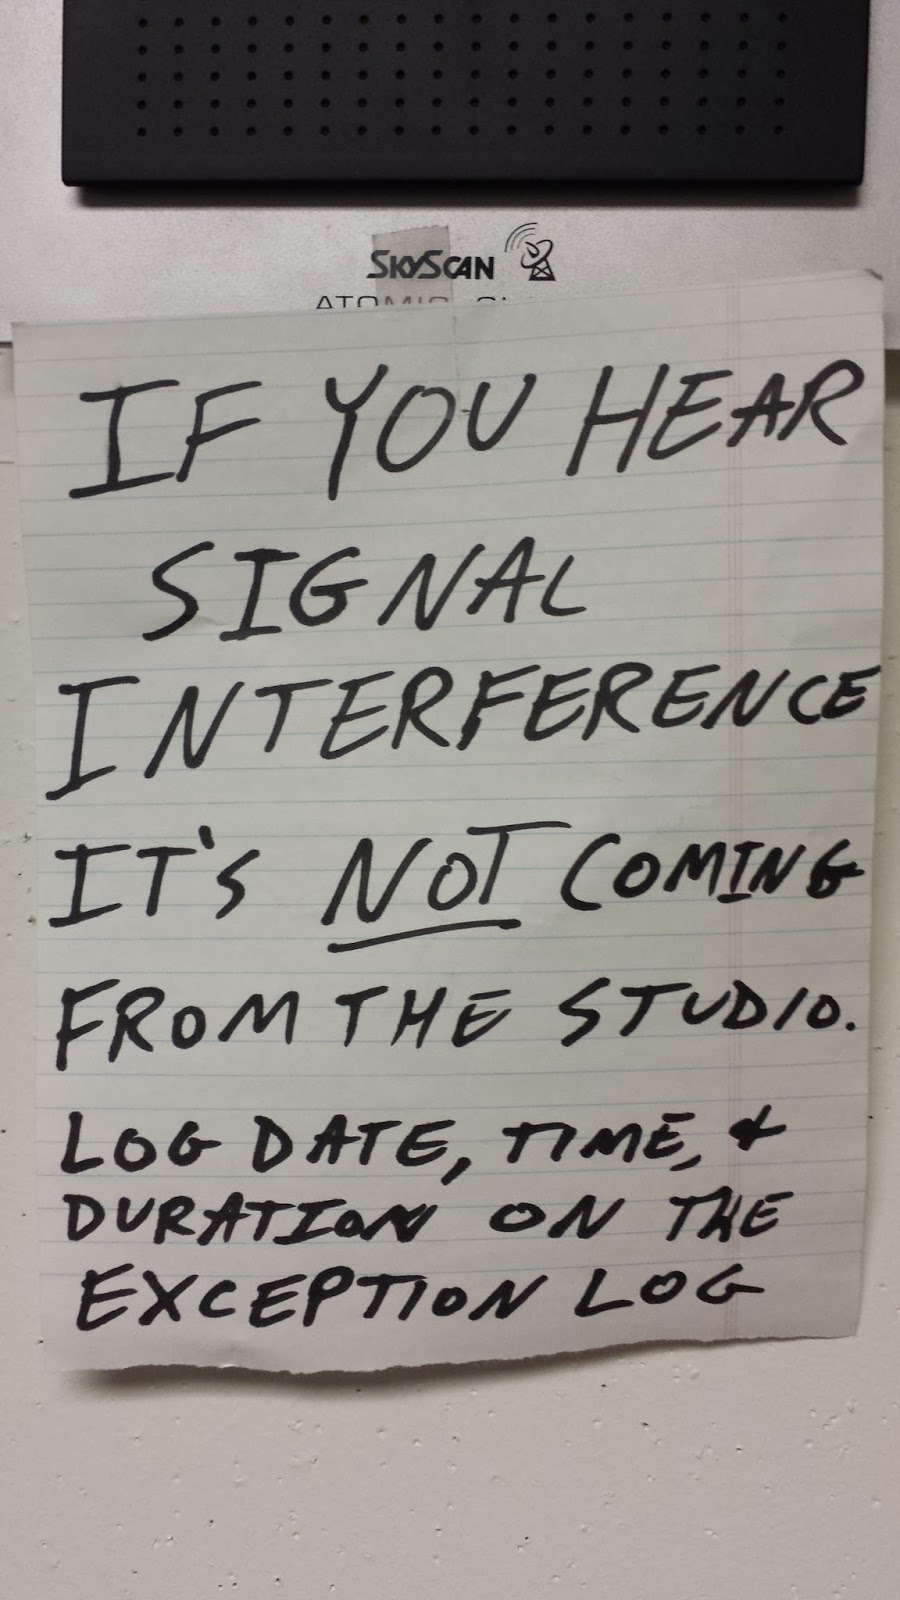 SKYSCAN
ATOMIC
IF YOU HEAR
SIGNAL
INTERFERENCE
IT'S NOT COMING
FROM THE STUDIO.
LOG DATE, TIME, &
DURATION ON THE
EXCEPTION LOG